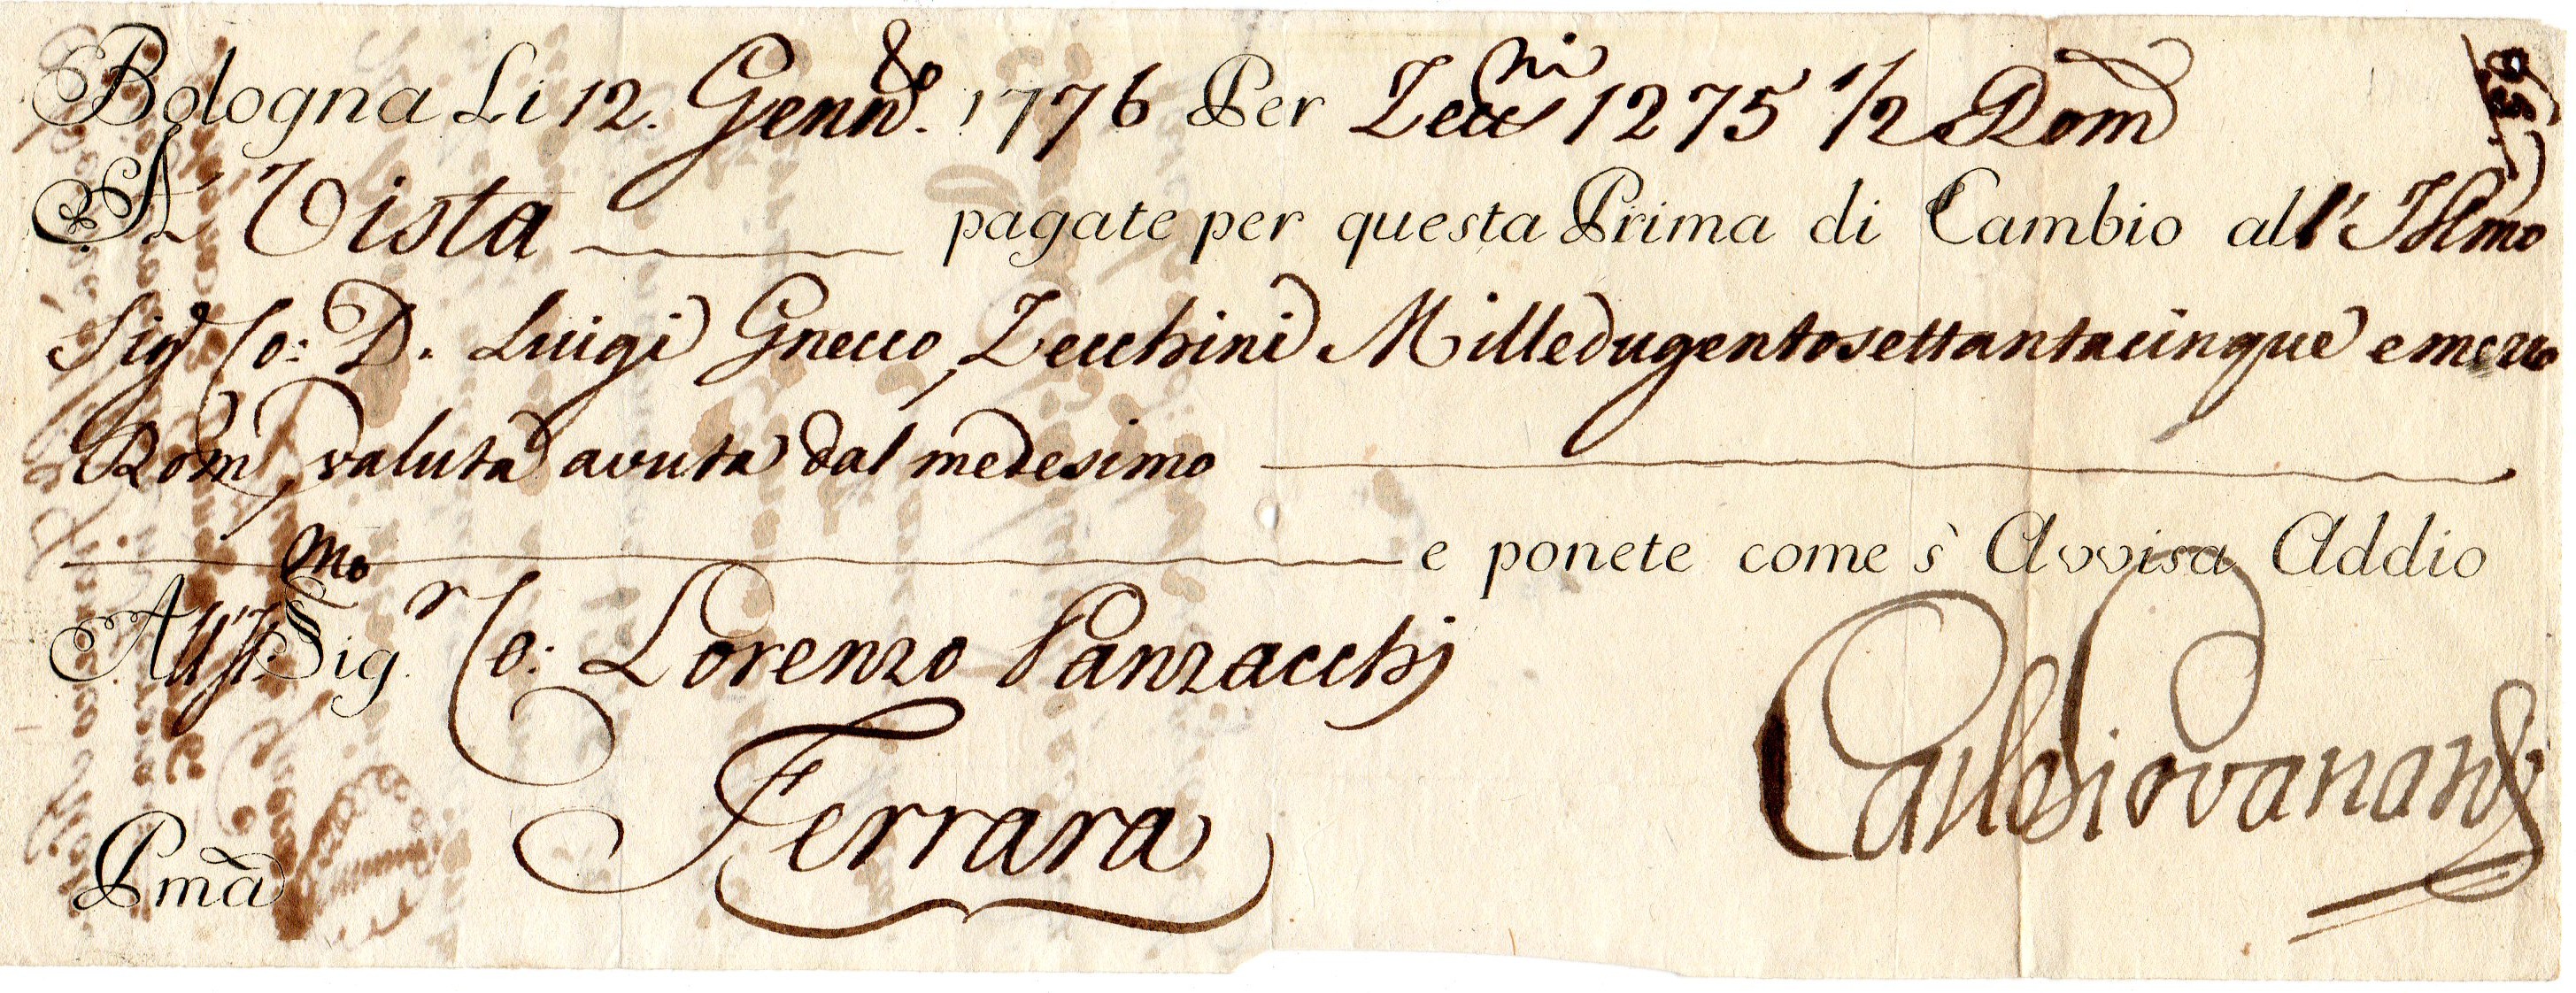 Bologna Li 12. Genn.ro 1776 Per Zecc.ni 1275 1/2 Rom
A Vista pagate per questa Prima di Cambio all' Illmo
Sigr Co: D. Luigi Gnecco, Zecchini Milledugentosettantacinque e mezzo
Rom, valuta avuta dal medesimo
e ponete come s' Avvisa Addio
All' Ill.mo Sig.r Co: Lorenzo Panzacchj
Ferrara
Pma